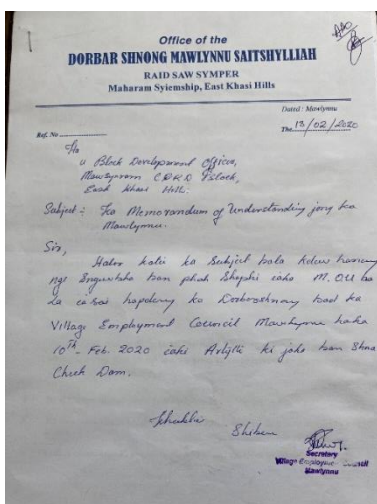 Office of the
DORBAR SHNONG MAWLYNNU SAITSHYLLIAH
RAID SAW SYMPER
Maharam Syiemship, East Khasi Hills
Dated : Mawlynnu
Ref. No. The 13/02/2020
To
u Block Development Officer,
C&RD Block,
East Khasi Hills.
Subject : Ka Memorandum of Understanding jong ka
Mawlynnu.
Sir,
Halor katei ka Subject kala
ngi ban phah ia ka M.O.U ba
la hapdeng ka Dorbarshnong bad ka
Village Employment Council Mawlynnu haka
10th Feb. 2020 ki ban Shna
Check Dam.
Khublei Shibun
Secretary
Village Employment Council
Mawlynnu